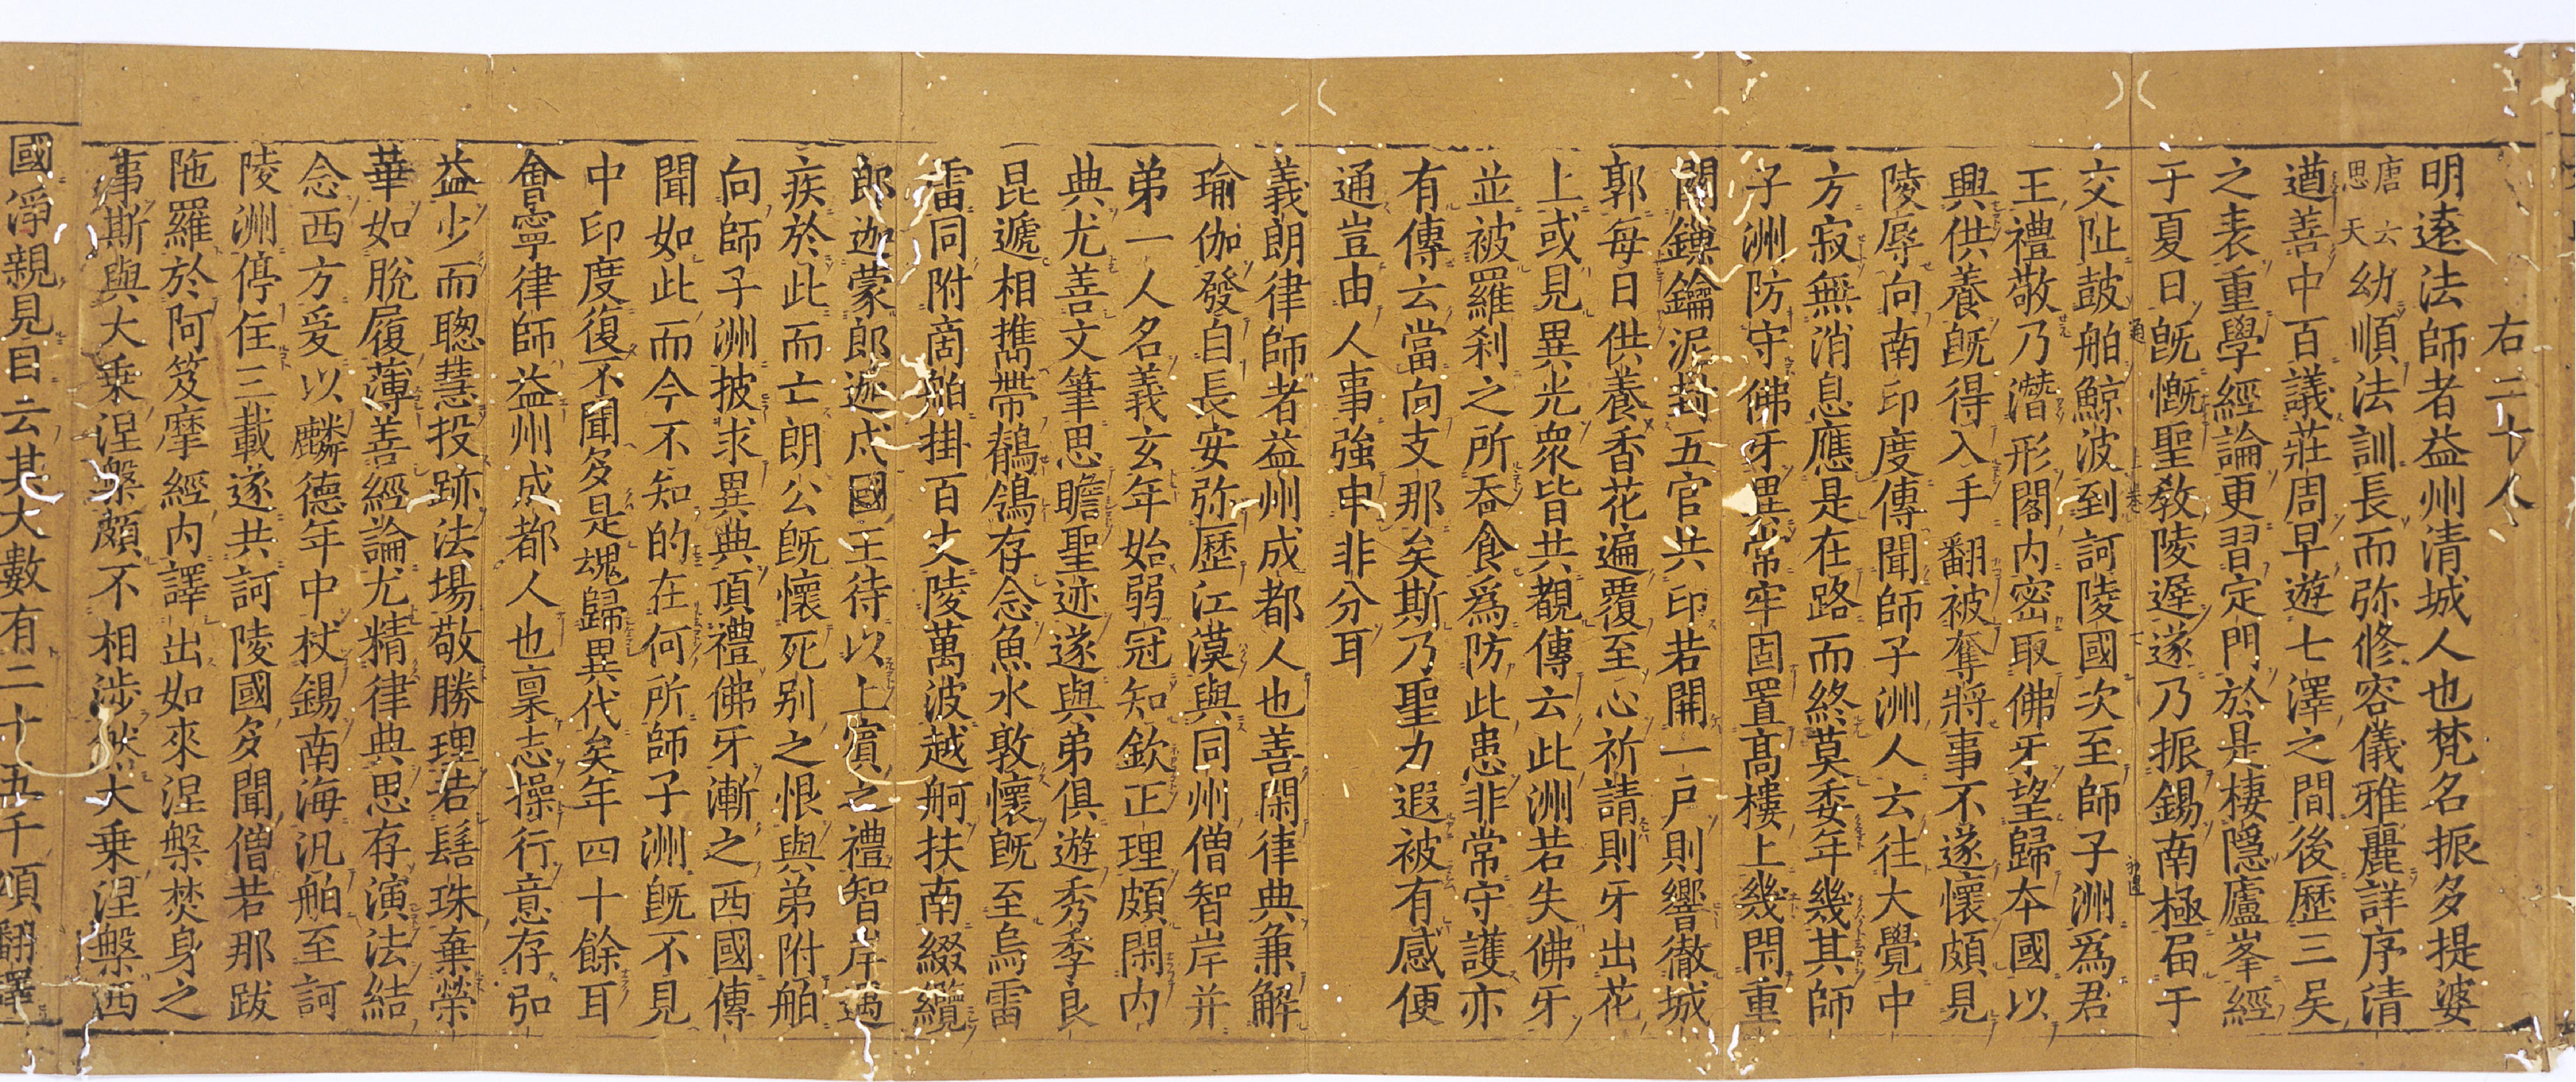 右二十人
明遠法師者益州清城人也梵名振多提婆
唐云思天幼順法訓長而弥修容儀雅麗詳序清
遒善中百議莊周早遊七澤之間後歷三吴
之表重學經論更習定門於是棲隱廬峯經
于夏日既慨聖教陵遲遂乃振錫南極届于
交阯鼓舶鯨波到訶陵國次至師子洲爲君
王禮敬乃潛形閣内密取佛牙望歸本國以
興供養既得入手翻被奪將事不遂懷頗見
陵辱向南印度傳聞師子洲人云往大覺中
方寂無消息應是在路而終莫委年幾其師
子洲防守佛牙異常牢固置髙樓上幾閇重
關鏁鑰泥封五官共印若開一戸則響徹城
郭每日供養香花遍覆至心祈請則牙出花
上或見異光衆皆共覩傳云此洲若失佛牙
並被羅刹之所吞食爲防此患非常守護亦
有傳云當向支那矣斯乃聖力遐被有感便
通豈由人事強申非分耳
義朗律師者益州成都人也善閑律典兼解
瑜伽發自長安弥歷江漢與同州僧智岸并
弟一人名義玄年始弱冠知欽正理頗閑内
典尤善文筆思瞻聖迹遂與弟俱遊秀季良
昆遞相擕帶鶺鴒存念魚水敦懷既至烏雷
雷同附商舶掛百丈陵萬波越舸扶南綴纜
郎迦蒙郎迦戍國王待以上賓之禮智岸遇
疾於此而亡朗公既懷死别之恨與弟附舶
向師子洲披求異典頂禮佛牙漸之西國傳
聞如此而今不知的在何所師子洲既不見
中印度復不聞多是魂歸異代矣年四十餘耳
會寧律師益州成都人也稟志操行意存弘
益少而聰慧投跡法場敬勝理若髻珠棄榮
華如脱屣薄善經論尤精律典思存演法結
念西方爰以麟德年中杖錫南海汎舶至訶
陵洲停住三載遂共訶陵國多聞僧若那跋
陁羅於阿笈摩經内譯出如來涅槃焚身之
事斯與大乗涅槃頗不相涉然大乗涅槃西
國淨親見目云其大數有二十五千頌翻譯